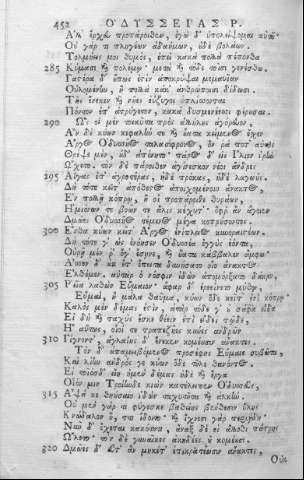 452 ΟΔΥΣΣΕΙΑΣ Ρ.
Ἀλλ' ἔρχευ προπάροιθεν, ἐγὼ δ' ὑπολείψομαι αὐτοῦ·
Οὐ γάρ τι πληγέων ἀδαήμων, οὐδὲ βολάων.
Τολμήεις μοι θυμὸς, ἐπεὶ κακὰ πολλὰ πέπονθα
285 Κύμασι καὶ πολέμῳ· μετὰ καὶ τόδε τοῖσι γενέσθω.
Γαστέρα δ' οὔπως ἔστιν ἀποκρύψαι μεμαυῖαν
Οὐλομένην, ἣ πολλὰ κάκ' ἀνθρώποισι δίδωσι.
Τῆς ἕνεκεν καὶ νῆες ἐΰζυγοι ὁπλίζονται
Πόντον ἐπ' ἀτρύγετον, κακὰ δυσμενέεσσι φέρουσαι.
290 Ὣς οἱ μὲν τοιαῦτα πρὸς ἀλλήλους ἀγόρευον·
Ἂν δὲ κύων κεφαλήν τε καὶ οὔατα κείμενος ἔσχεν
Ἄργος Ὀδυσσῆος ταλασίφρονος, ὅν ῥά ποτ' αὐτὸς
Θρέψε μὲν, οὐδ' ἀπόνητο· πάρος δ' εἰς Ἴλιον ἱρὴν
ᾬχετο· τὸν δὲ πάροιθεν ἀγίνεσκον νέοι ἄνδρες
295 Αἶγας ἐπ' ἀγροτέρας, ἠδὲ πρόκας, ἠδὲ λαγωούς·
Δὴ τότε κεῖτ' ἀπόθεστος ἀποιχομένοιο ἄνακτος,
Ἐν πολλῇ κόπρῳ, ἥ οἱ προπάροιθε θυράων
Ἡμιόνων τε βοῶν τε ἅλις κέχυτ'· ὄφρ' ἂν ἄγοιεν
Δμῶες Ὀδυσσῆος τέμενος μέγα κοπρίσοντες·
300 Ἔνθα κύων κεῖτ' Ἄργος ἐνίπλειος κυνοραιστέων.
Δὴ τότε γ' ὡς ἐνόησεν Ὀδυσσέα ἐγγὺς ἐόντα,
Οὐρῇ μέν ῥ' ὅγ' ἔσηνε, καὶ οὔατα κάββαλεν ἄμφω·
Ἆσσον δ' οὐκ ἔτ' ἔπειτα δυνήσατο οἷο ἄνακτος
Ἐλθέμεν. αὐτὰρ ὁ νόσφιν ἰδὼν ἀπομόρξατο δάκρυ,
305 Ῥεῖα λαθὼν Εὔμαιον· ἄφαρ δ' ἐρεείνετο μύθῳ,
Εὔμαι', ἦ μάλα θαῦμα, κύων ὅδε κεῖτ' ἐνὶ κόπρῳ·
Καλὸς μὲν δέμας ἐστὶν, ἀτὰρ τόδε γ' οὐ σάφα οἶδα
Εἰ δὴ καὶ ταχὺς ἔσκε θέειν ἐπὶ εἴδεϊ τῷδε,
Ἢ αὔτως, οἷοί τε τραπεζῆες κύνες ἀνδρῶν
310 Γίγνοντ', ἀγλαΐης δ' ἕνεκεν κομέουσιν ἄνακτες.
Τὸν δ' ἀπαμειβόμενος προσέφης Εὔμαιε συβῶτα,
Καὶ λίην ἀνδρὸς γε κύων ὅδε τῆλε θανόντος
Εἰ τοιόσδ' εἴη ἠμὲν δέμας ἠδὲ καὶ ἔργα
Οἷόν μιν Τροίηνδε κιὼν κατέλειπεν Ὀδυσσεύς,
315 Αἶψά κε θηήσαιο ἰδὼν ταχυτῆτα καὶ ἀλκήν.
Οὐ μὲν γάρ τι φύγεσκε βαθείης βένθεσιν ὕλης
Κνώδαλον ὅ, ττι ἴδοιτο· καὶ ἴχνεσι γὰρ περιῄδη·
Νῦν δ' ἔχεται κακότητι, ἄναξ δέ οἱ ἄλλοθι πάτρης
Ὤλετο· τὸν δὲ γυναῖκες ἀκηδέες οὐ κομέουσι.
320 Δμῶες δ' εὖτ' ἂν μηκέτ' ἐπικρατέωσιν ἄνακτες,
Οὐκ